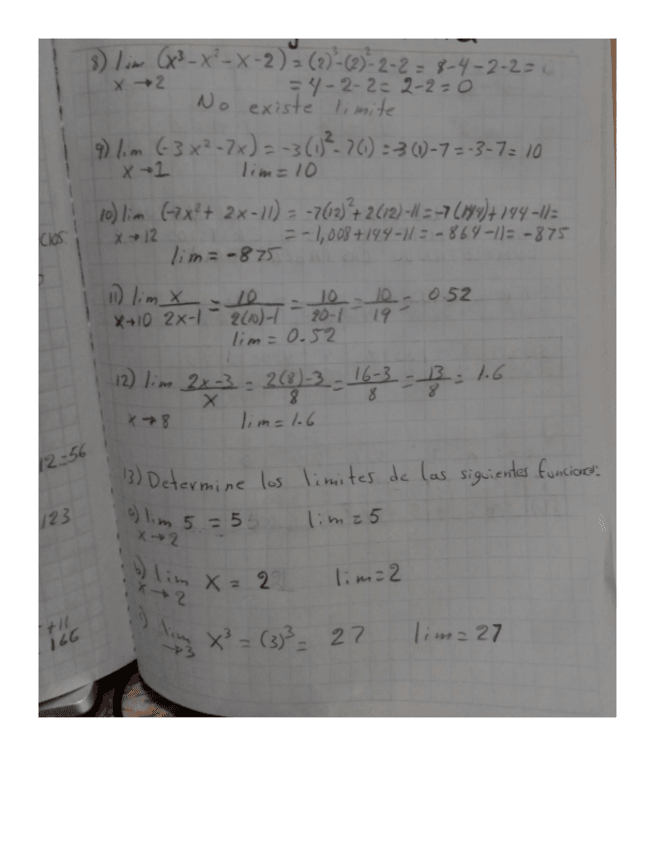 8) lim (x³-x²-x-2) = (2)³-(2)²-2-2 = 8-4-2-2=
x→2 = 4-2-2= 2-2=0
No existe limite
9) lim (-3x²-7x) = -3(1)²-7(1) =-3(1)-7=-3-7= 10
x→1 lim= 10
10) lim (-7x²+ 2x-11) = -7(12)²+2(12)-11=-7(144)+144-11=
x→12 = -1,008+144-11= -864-11= -875
lim= -875
11) lim x/2x-1 = 10/2(10)-1 = 10/20-1 = 10/19 = 0.52
x→10
lim= 0.52
12) lim 2x-3/x = 2(8)-3/8 = 16-3/8 = 13/8 = 1.6
x→8 lim= 1.6
13) Determine los limites de las siguientes funciones:
a) lim 5 = 5 lim=5
x→2
b) lim x = 2 lim=2
x→2
) lim x³ = (3)³= 27 lim= 27
→3
12=56
123
+11
166